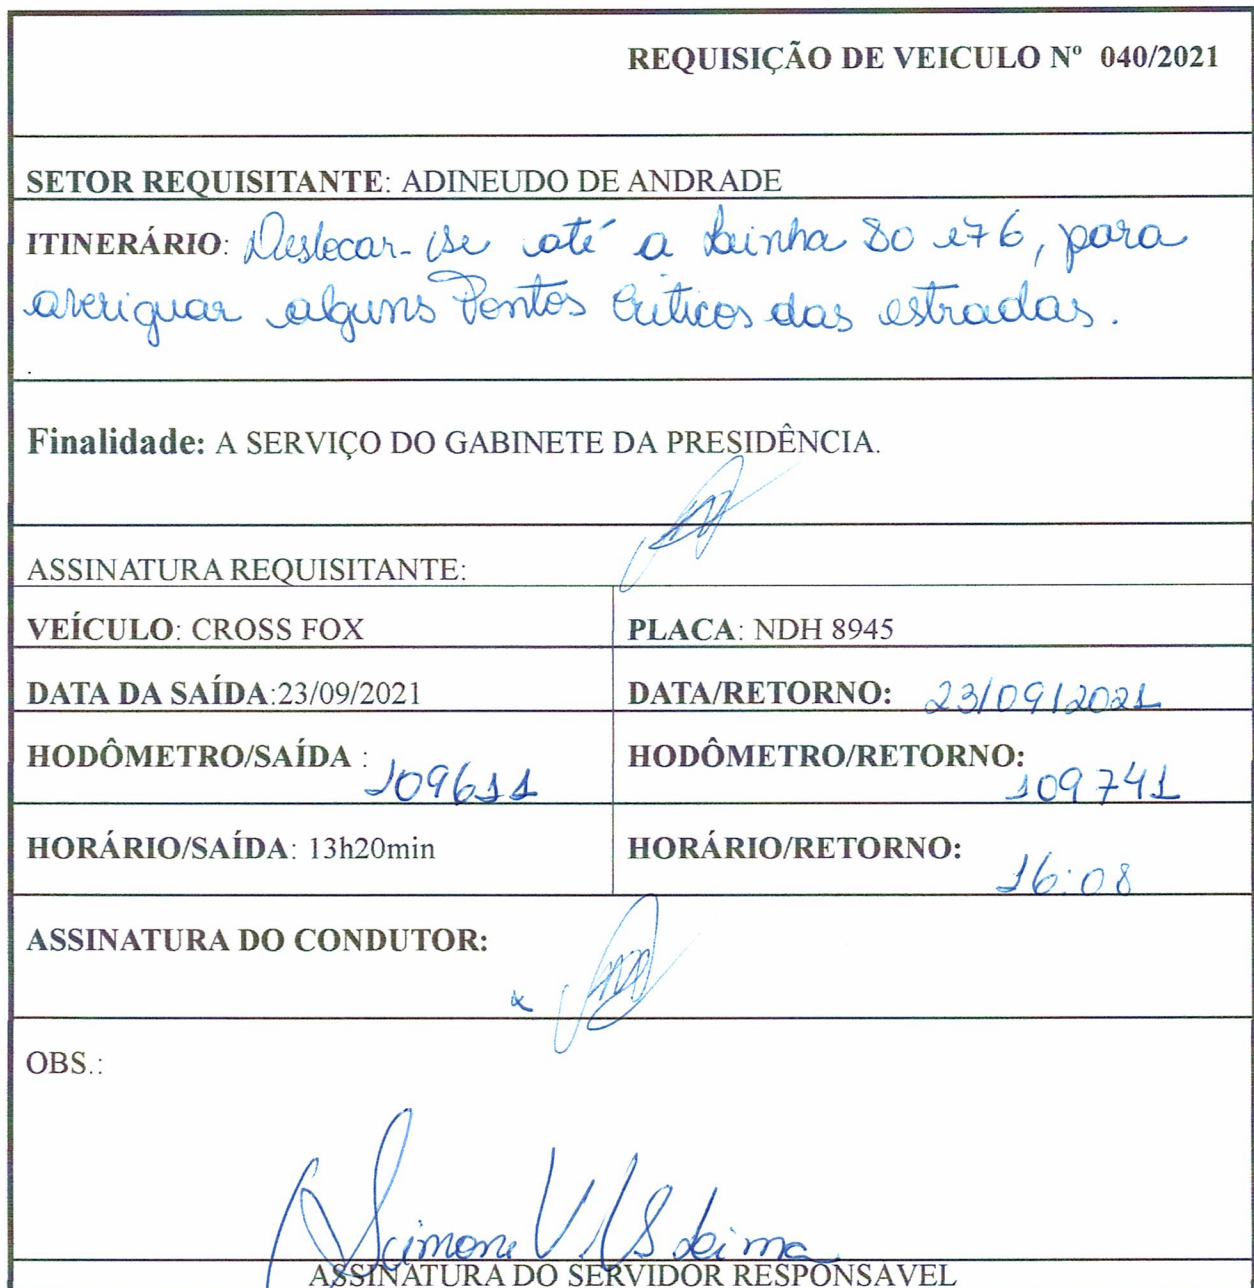 REQUISIÇÃO DE VEICULO Nº 040/2021
SETOR REQUISITANTE: ADINEUDO DE ANDRADE
ITINERÁRIO: Deslocar-se até a Lainha 80 e 76, para
averiguar alguns Pontos Criticos das estradas.
.
Finalidade: A SERVIÇO DO GABINETE DA PRESIDÊNCIA.
ASSINATURA REQUISITANTE:
VEÍCULO: CROSS FOX
PLACA: NDH 8945
DATA DA SAÍDA:23/09/2021
DATA/RETORNO: 23/09/2021
HODÔMETRO/SAÍDA : 109611
HODÔMETRO/RETORNO: 109741
HORÁRIO/SAÍDA: 13h20min
HORÁRIO/RETORNO: 16:08
ASSINATURA DO CONDUTOR: x
OBS.:
Simone V. S Leima
ASSINATURA DO SERVIDOR RESPONSAVEL